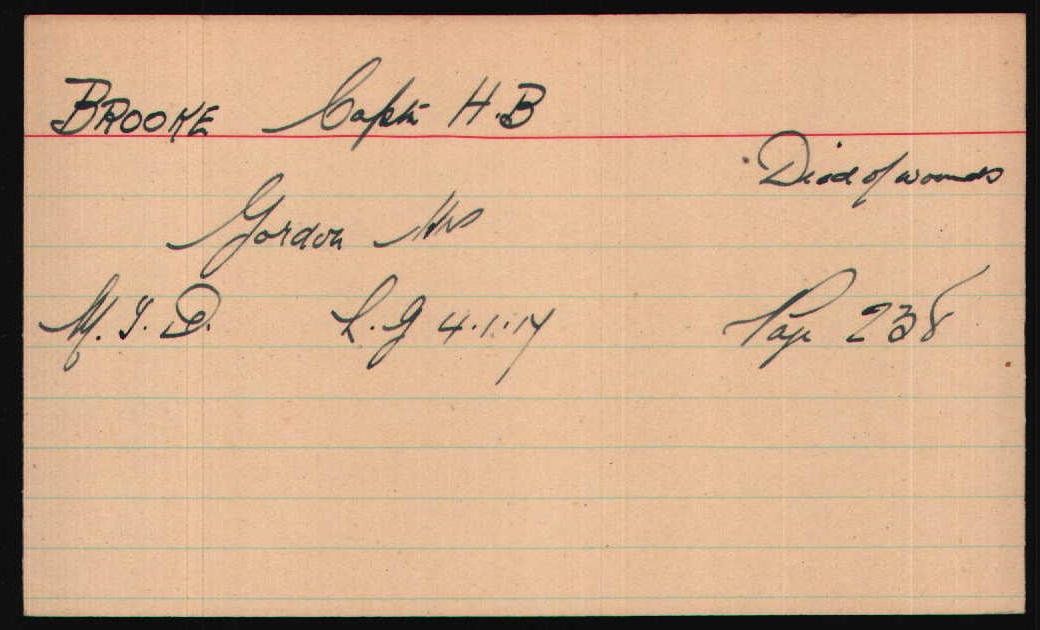 BROOKE Captn H.B
Died of wounds
Gordon Hrs
M.I.D. L.G 4.1.17 Page 238